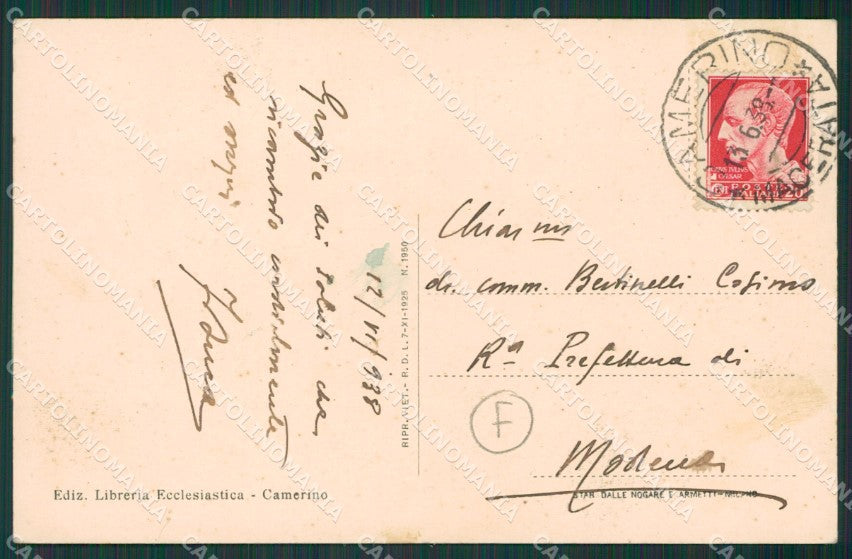 Grazie dei saluti che
ricambio cordialmente
ed auguri
12/VI/938
RIPR. VIET. - R. D. L. 7-XI-1925 N. 1950
Ediz. Libreria Ecclesiastica - Camerino
CAMERINO
MACERATA
13 6 38
CAESAR
POSTE
ITALIANE
20
Chiar.mo
dr. comm. Bertinelli Cosimo
Rª Prefettura di
Modena
F
STAB. DALLE NOGARE E ARMETTI-MILANO
CARTOLINOMANIA